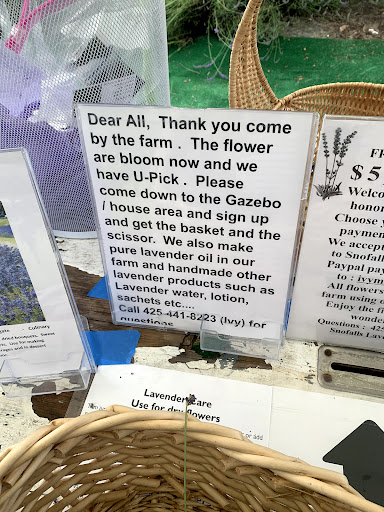 Dear All, Thank you come
by the farm . The flower
are bloom now and we
have U-Pick . Please
come down to the Gazebo
/ house area and sign up
and get the basket and the
scissor. We also make
pure lavender oil in our
farm and handmade other
lavender products such as
Lavender water, lotion,
sachets etc....
Call 425-441-8223 (Ivy) for
questions
$5
Welcome
honor
Choose y
payment
We accept
to Snofalls
Paypal pa
to : ivym
All flowers
farm using
Enjoy the f
wonde
Questions : 425
Snofalls Lav
Culinary
dried bouquets. Sweet
Use for making
Lavender Care
Use for dry flowers
or add